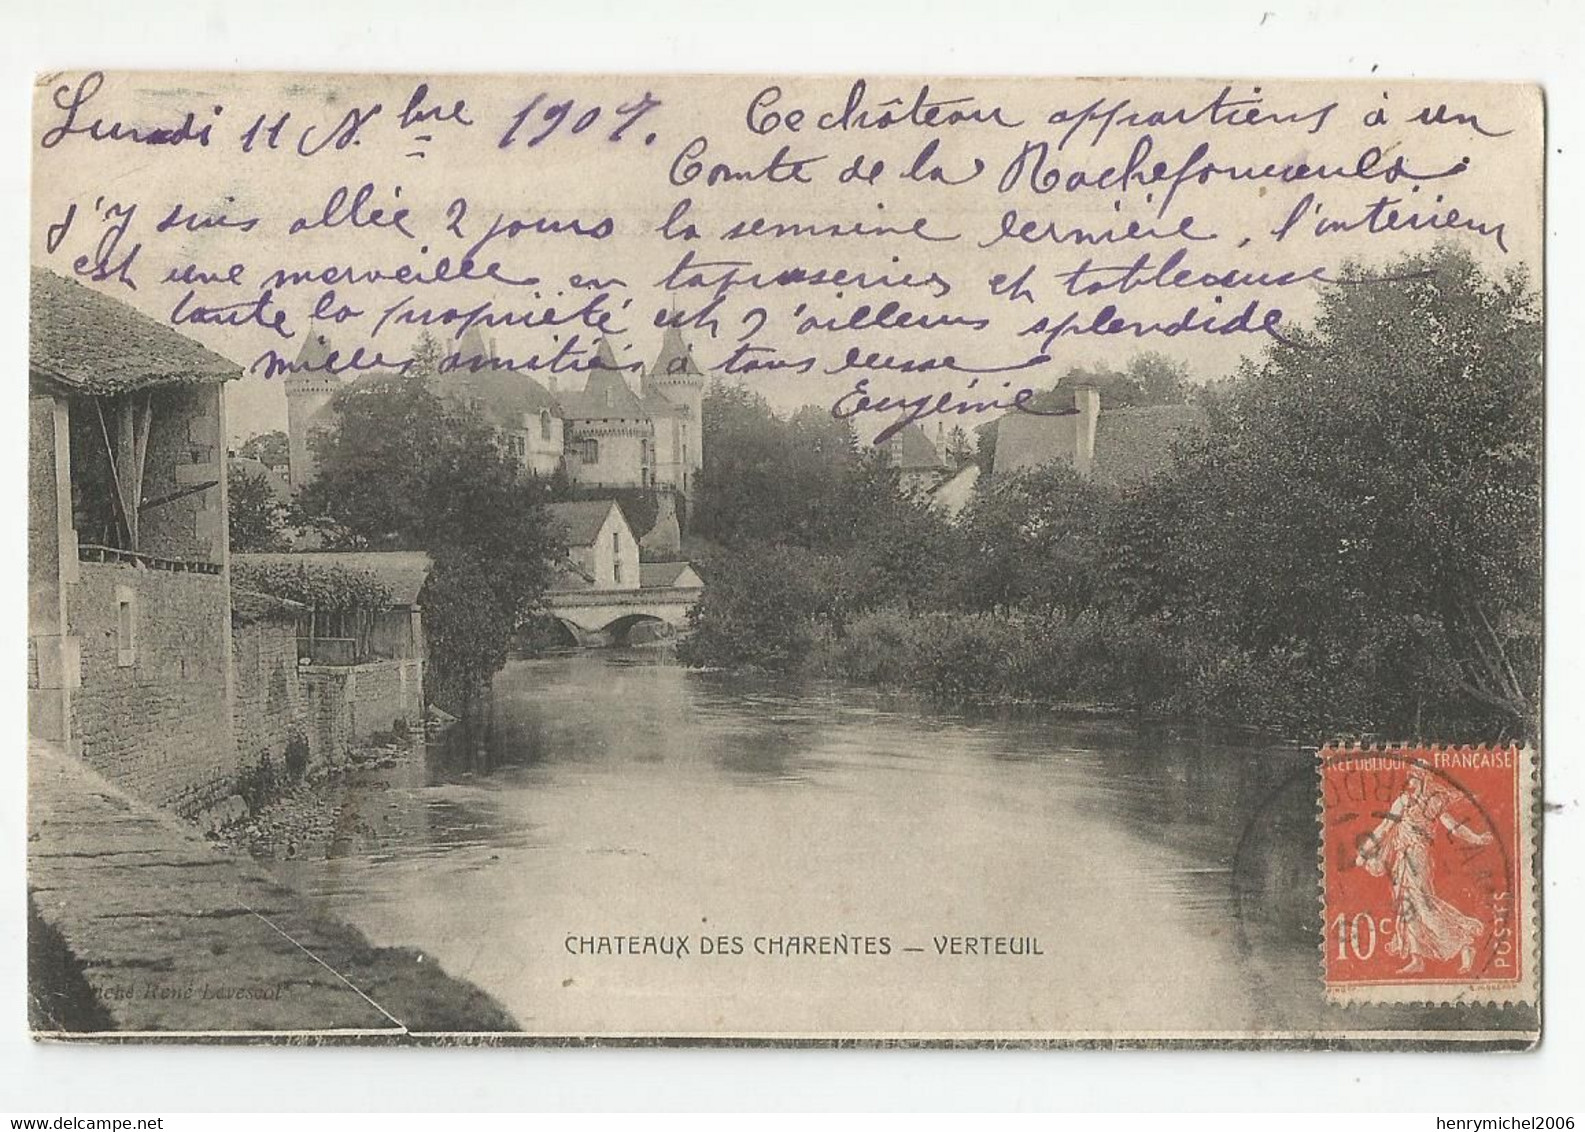 Lundi 11 N.bre 1907. Ce château appartient à un
Comte de la Rochefoucauld.
J'y suis allée 2 jours la semaine dernière, l'intérieur
est une merveille en tapisseries et tableaux
toute la propriété est d'ailleurs splendide
milles amitiés à tous
Eugénie
REPUBLIQUE FRANÇAISE
10c
POSTES
CHATEAUX DES CHARENTES — VERTEUIL
René Levescot
henrymichel2006